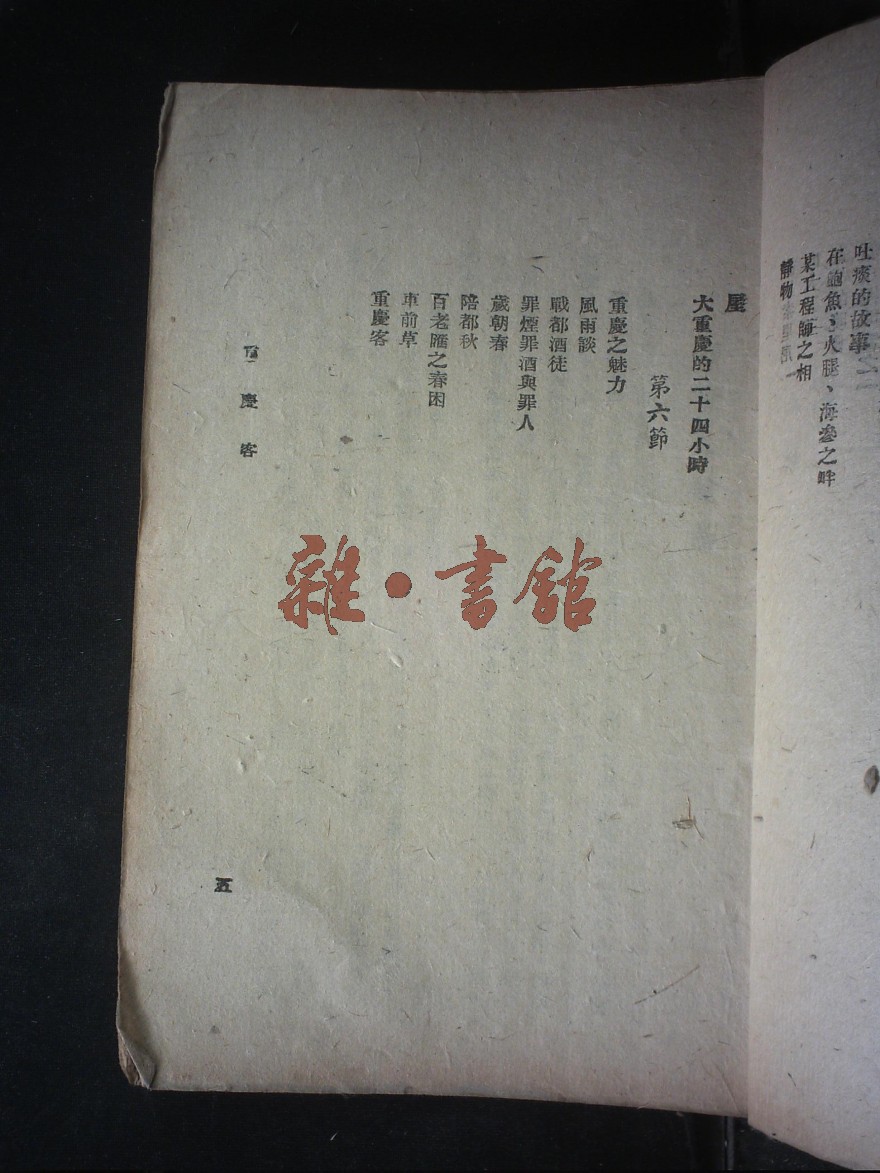 吐痰的故事
在鮑魚、火腿、海參之畔
某工程師之相
靜物
屋
大重慶的二十四小時
第六節
重慶之魅力
風雨談
戰都酒徒
罪煙罪酒與罪人
歲朝春
陪都秋
百老匯之春困
車前草
重慶客
重慶客
五
雜·書館